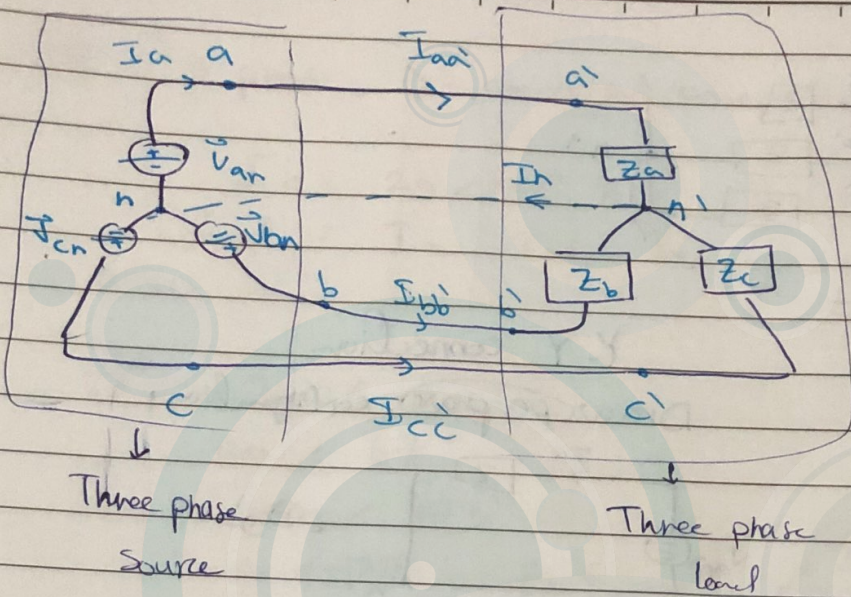 Ia a Iaa' a'
+
-
Van
Za
n In n'
Vcn Vbn
Zb Zc
b Ibb' b'
c Icc' c'
Three phase
Source
Three phase
load